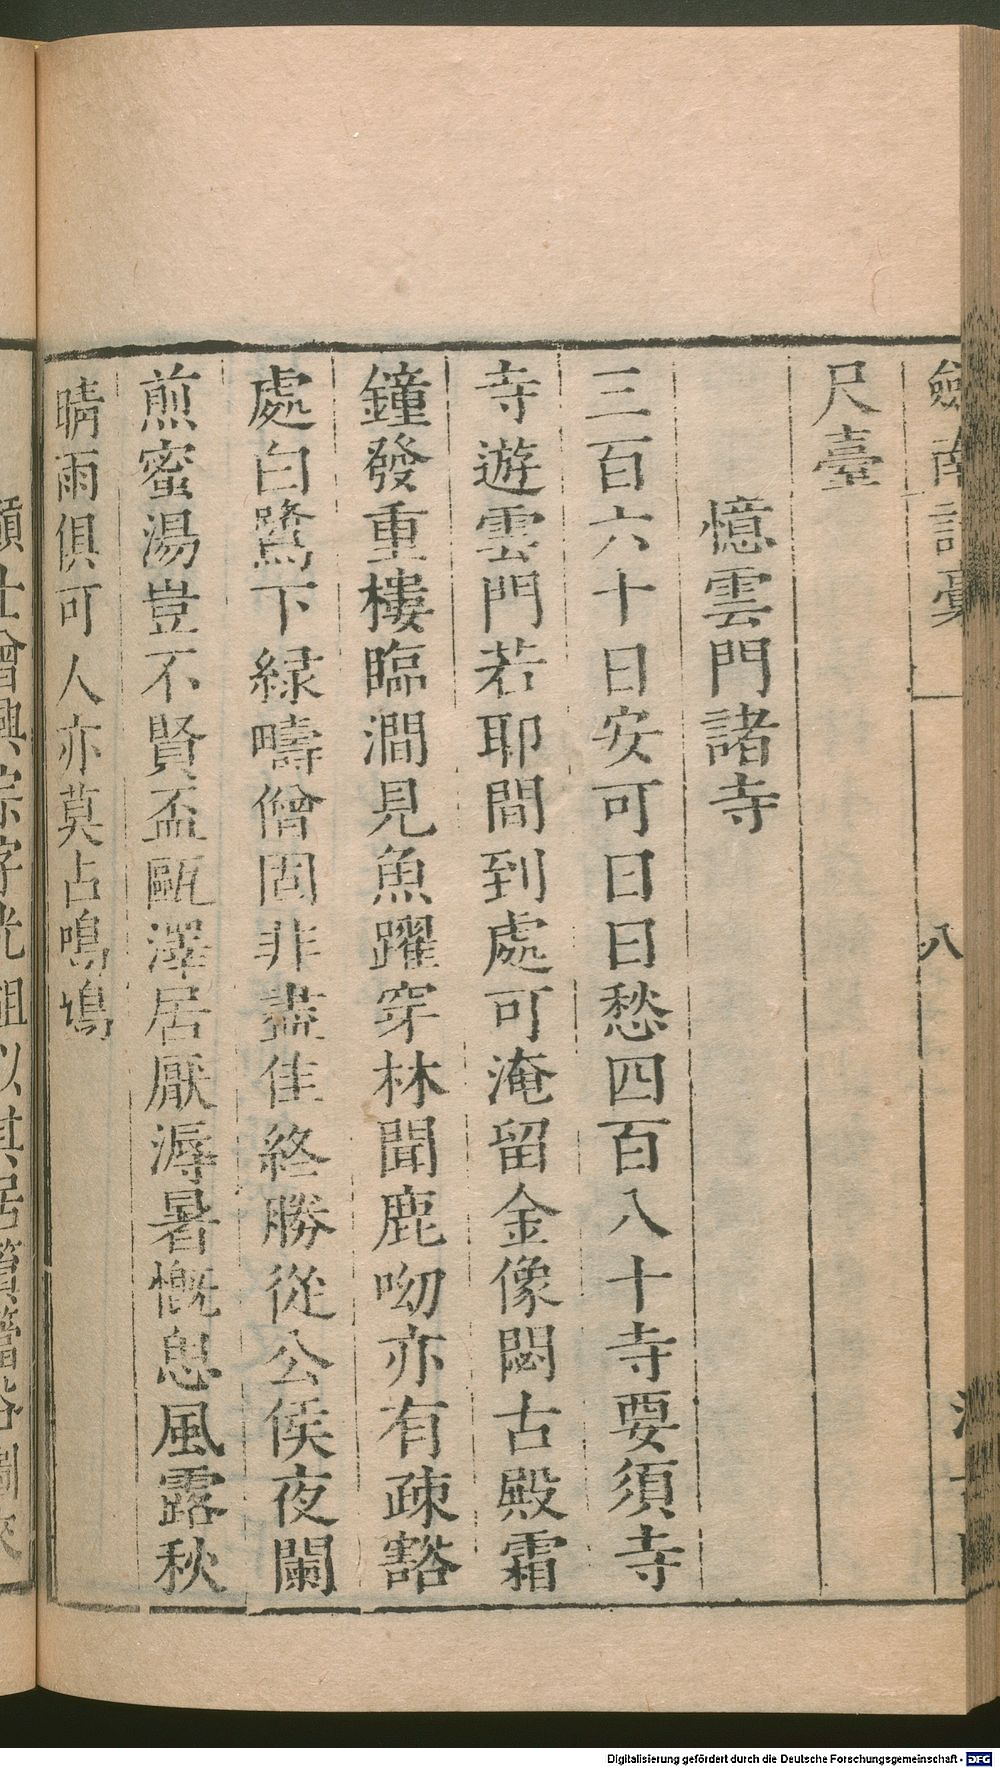 劒南詩稾
八
尺臺
憶雲門諸寺
三百六十日安可日日愁四百八十寺要須寺
寺遊雲門若耶間到處可淹留金像閟古殿霜
鐘發重樓臨澗見魚躍穿林聞鹿呦亦有疎豁
處白鷺下緑疇僧固非盡佳終勝從公侯夜闌
煎蜜湯豈不賢盃甌澤居厭溽暑慨息風露秋
晴雨俱可人亦莫占鳴鳩
Digitalisierung gefördert durch die Deutsche Forschungsgemeinschaft - DFG